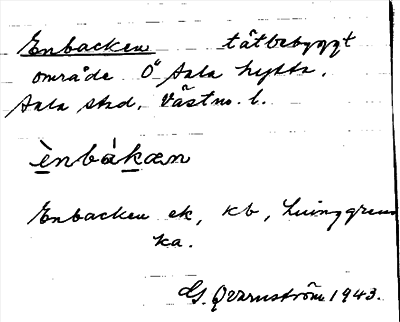 Enbacken tätbebyggt
område Ö Sala hytta.
Sala stad. Västm. l.
ènbákæn
Enbacken ek, kb,
ka.
G. Qvarnström 1943.